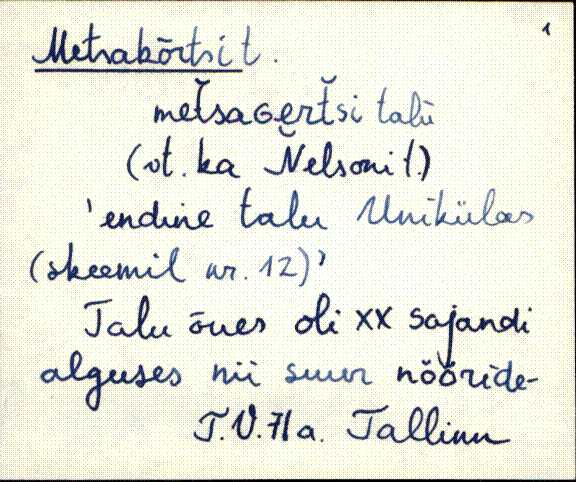 1
Metsakõrtsi t.
metšaɢertši talù
(vt. ka Nelsoni t.)
'endine talu Uniküläs
(skeemil nr. 12)'
Talu õues oli XX sajandi
alguses nii suur nööride-
T.V. 71a. Tallinn